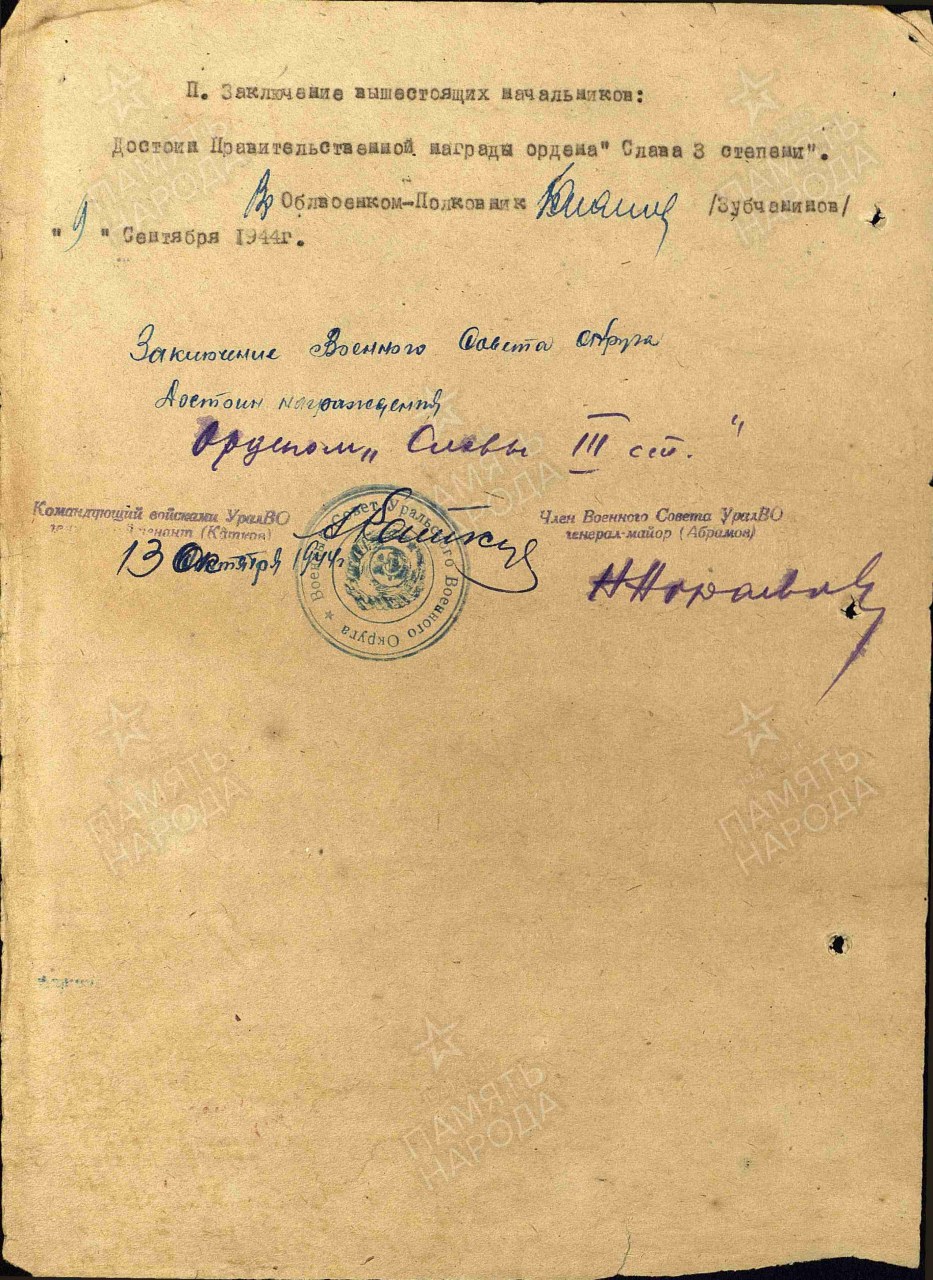 П. Заключение вышестоящих начальников:
Достоин Правительственной награды ордена" Слава 3 степени".
Вр Облвоенком-Полковник /Зубчанинов/
" 9 " Сентября 1944г.
Заключение Военного Совета Округа
Достоин награждения
Орденом „ Славы III ст. "
Командующий войсками УралВО
(Катков)
13 Октября 1944г
Член Военного Совета УралВО
генерал-майор (Абрамов)
Военный Совет Уральского Военного Округа
ПАМЯТЬ
НАРОДА
ПАМЯТЬ
НАРОДА
ПАМЯТЬ
НАРОДА
ПАМЯТЬ
НАРОДА
ПАМЯТЬ
НАРОДА
ПАМЯТЬ
НАРОДА